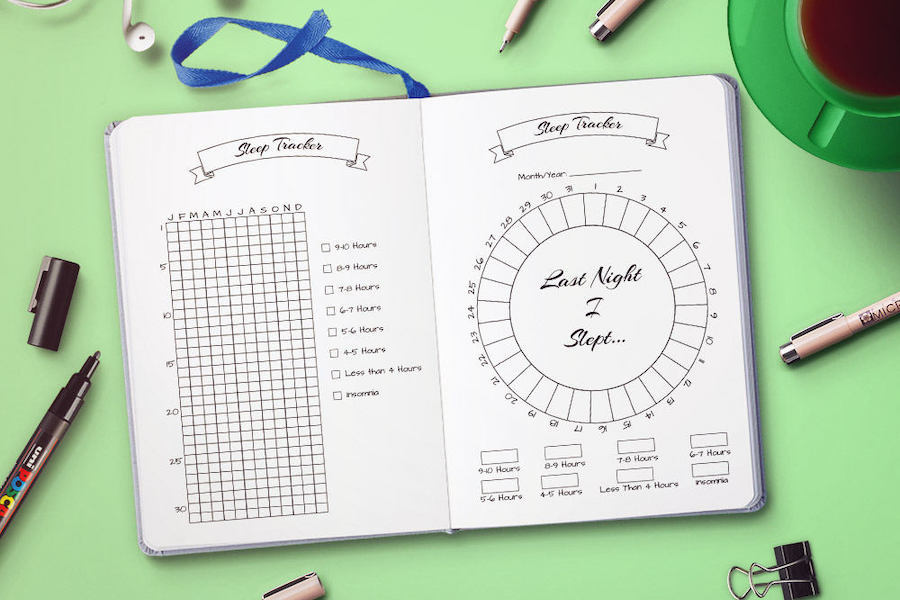 Sleep Tracker
J F M A M J J A S O N D
1
5
10
15
20
25
30
9-10 Hours
8-9 Hours
7-8 Hours
6-7 Hours
5-6 Hours
4-5 Hours
Less than 4 Hours
insomnia
Sleep Tracker
Month/Year:
1
2
3
4
5
6
7
8
9
10
11
12
13
14
15
16
17
18
19
20
21
22
23
24
25
26
27
28
29
30
31
Last Night
I
Slept...
9-10 Hours
8-9 Hours
7-8 Hours
6-7 Hours
5-6 Hours
4-5 Hours
Less Than 4 Hours
insomnia
uni
POSCA
MICR